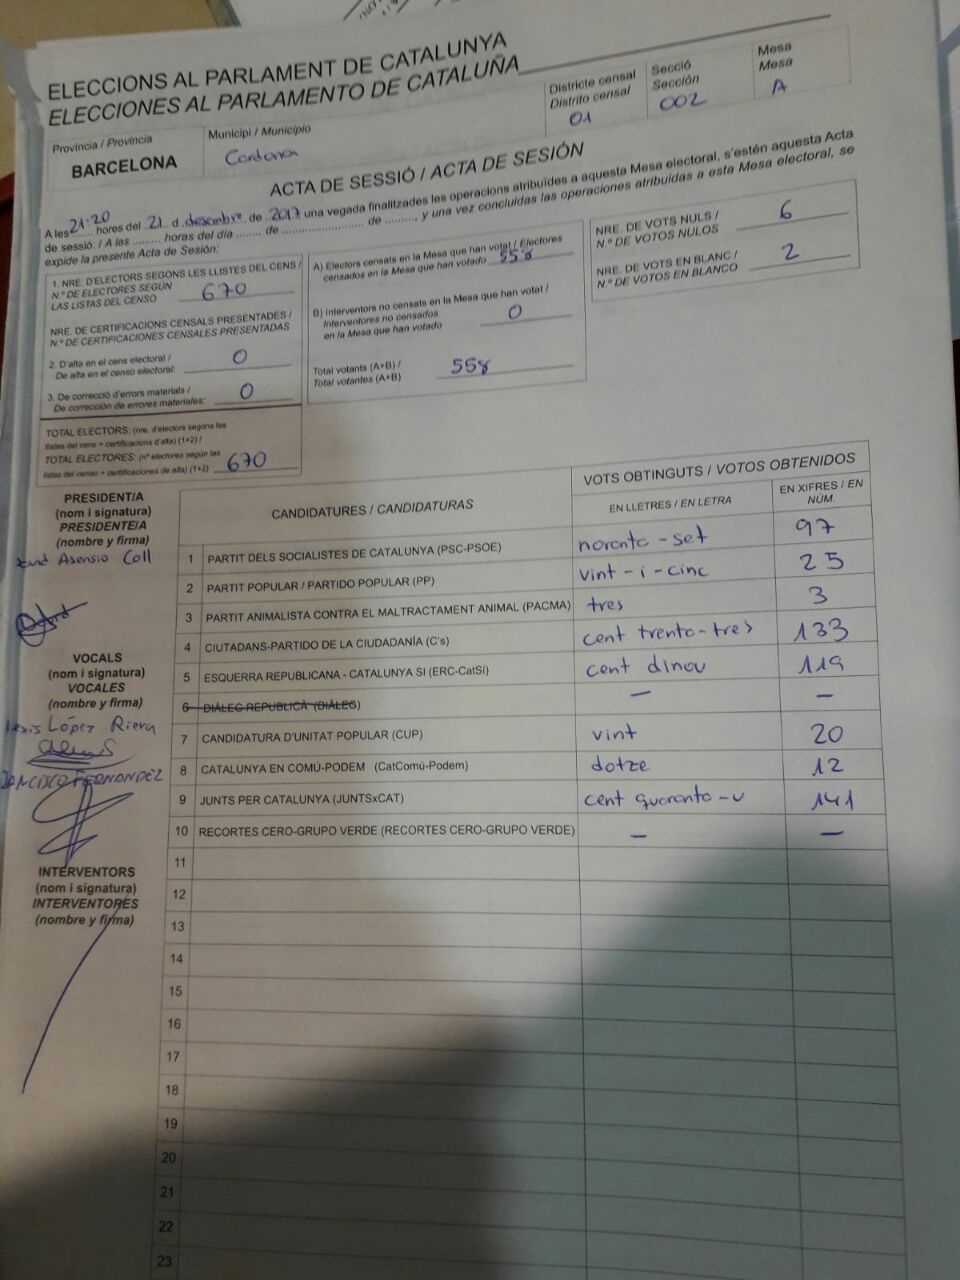 ELECCIONS AL PARLAMENT DE CATALUNYA
ELECCIONES AL PARLAMENTO DE CATALUÑA
Província / Provincia
BARCELONA
Municipi / Municipio
Cardona
Districte censal
Distrito censal
01
Secció
Sección
002
Mesa
Mesa
A
ACTA DE SESSIÓ / ACTA DE SESIÓN
A les 21:20 hores del 21 d desembre de 2017 una vegada finalitzades les operacions atribuïdes a aquesta Mesa electoral, s'estén aquesta Acta
de sessió. / A las ......... horas del día ........ de ........................ de ........., y una vez concluidas las operaciones atribuidas a esta Mesa electoral, se
expide la presente Acta de Sesión:
1. NRE. D'ELECTORS SEGONS LES LLISTES DEL CENS /
N.º DE ELECTORES SEGÚN
LAS LISTAS DEL CENSO 670
NRE. DE CERTIFICACIONS CENSALS PRESENTADES /
N.º DE CERTIFICACIONES CENSALES PRESENTADAS
2. D'alta en el cens electoral /
De alta en el censo electoral: 0
3. De correcció d'errors materials /
De corrección de errores materiales: 0
TOTAL ELECTORS: (nre. d'electors segons les
llistes del cens + certificacions d'alta) (1+2) /
TOTAL ELECTORES: (nº electores según las
listas del censo + certificaciones de alta) (1+2) 670
A) Electors censats en la Mesa que han votat / Electores
censados en la Mesa que han votado 558
B) Interventors no censats en la Mesa que han votat /
Interventores no censados
en la Mesa que han votado 0
Total votants (A+B) /
Total votantes (A+B) 558
NRE. DE VOTS NULS /
N.º DE VOTOS NULOS 6
NRE. DE VOTS EN BLANC /
N.º DE VOTOS EN BLANCO 2
PRESIDENT/A
(nom i signatura)
PRESIDENTE/A
(nombre y firma)
Asensio Coll
VOCALS
(nom i signatura)
VOCALES
(nombre y firma)
López Riera
FERNANDEZ
INTERVENTORS
(nom i signatura)
INTERVENTORES
(nombre y firma)
CANDIDATURES / CANDIDATURAS
VOTS OBTINGUTS / VOTOS OBTENIDOS
EN LLETRES / EN LETRA
EN XIFRES / EN NÚM.
1 PARTIT DELS SOCIALISTES DE CATALUNYA (PSC-PSOE) noranta-set 97
2 PARTIT POPULAR / PARTIDO POPULAR (PP) vint-i-cinc 25
3 PARTIT ANIMALISTA CONTRA EL MALTRACTAMENT ANIMAL (PACMA) tres 3
4 CIUTADANS-PARTIDO DE LA CIUDADANÍA (C's) cent trenta-tres 133
5 ESQUERRA REPUBLICANA - CATALUNYA SI (ERC-CatSí) cent dinou 119
6 DIÀLEG REPUBLICÀ (DIÀLEG) — —
7 CANDIDATURA D'UNITAT POPULAR (CUP) vint 20
8 CATALUNYA EN COMÚ-PODEM (CatComú-Podem) dotze 12
9 JUNTS PER CATALUNYA (JUNTSxCAT) cent quaranta-u 141
10 RECORTES CERO-GRUPO VERDE (RECORTES CERO-GRUPO VERDE) — —
11
12
13
14
15
16
17
18
19
20
21
22
23